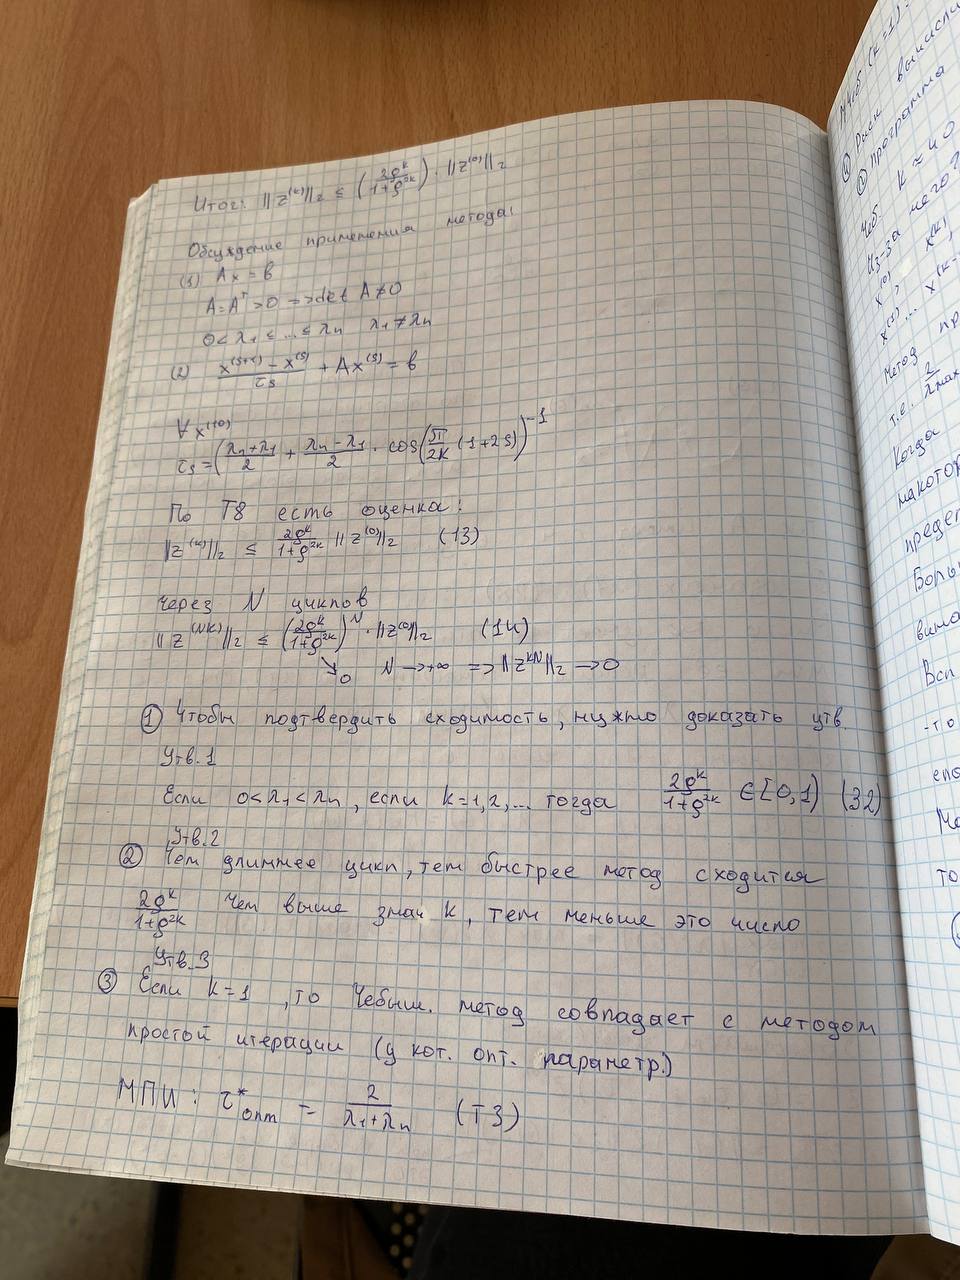 Итог: ||z^(k)||₂ ≤ (2ρ^k / 1+ρ^2k) · ||z^(0)||₂
Обсуждение применения метода:
(1) Ax = b
A = A^T > 0 => det A ≠ 0
0 < λ₁ ≤ ... ≤ λn λ₁ ≠ λn
(2) (x^(s+1) - x^(s)) / τs + Ax^(s) = b
∀ x^(0)
τs = ( (λn+λ₁)/2 + (λn-λ₁)/2 · cos(π/2k (1+2s)) )^-1
По Т8 есть оценка:
||z^(k)||₂ ≤ 2ρ^k / 1+ρ^2k ||z^(0)||₂ (13)
через N циклов
||z^(Nk)||₂ ≤ (2ρ^k / 1+ρ^2k)^N · ||z^(0)||₂ (14)
↘0 N → +∞ => ||z^kN||₂ → 0
① Чтобы подтвердить сходимость, нужно доказать утв.
Утв.1
Если 0 < λ₁ < λn, если k=1,2,... тогда 2ρ^k / 1+ρ^2k ∈ [0,1) (32)
Утв.2
② Чем длиннее цикл, тем быстрее метод сходится
2ρ^k / 1+ρ^2k Чем выше знач k, тем меньше это число
Утв.3
③ Если k=1, то Чебыш. метод совпадает с методом
простой итерации (у кот. опт. параметр.)
МПИ: τ*опт = 2 / λ₁+λn (Т3)
(k=1)
программа
k ≈ 40
Из-за
x^(0), x^(k),
метод
т.е. 2 / λmax
Когда